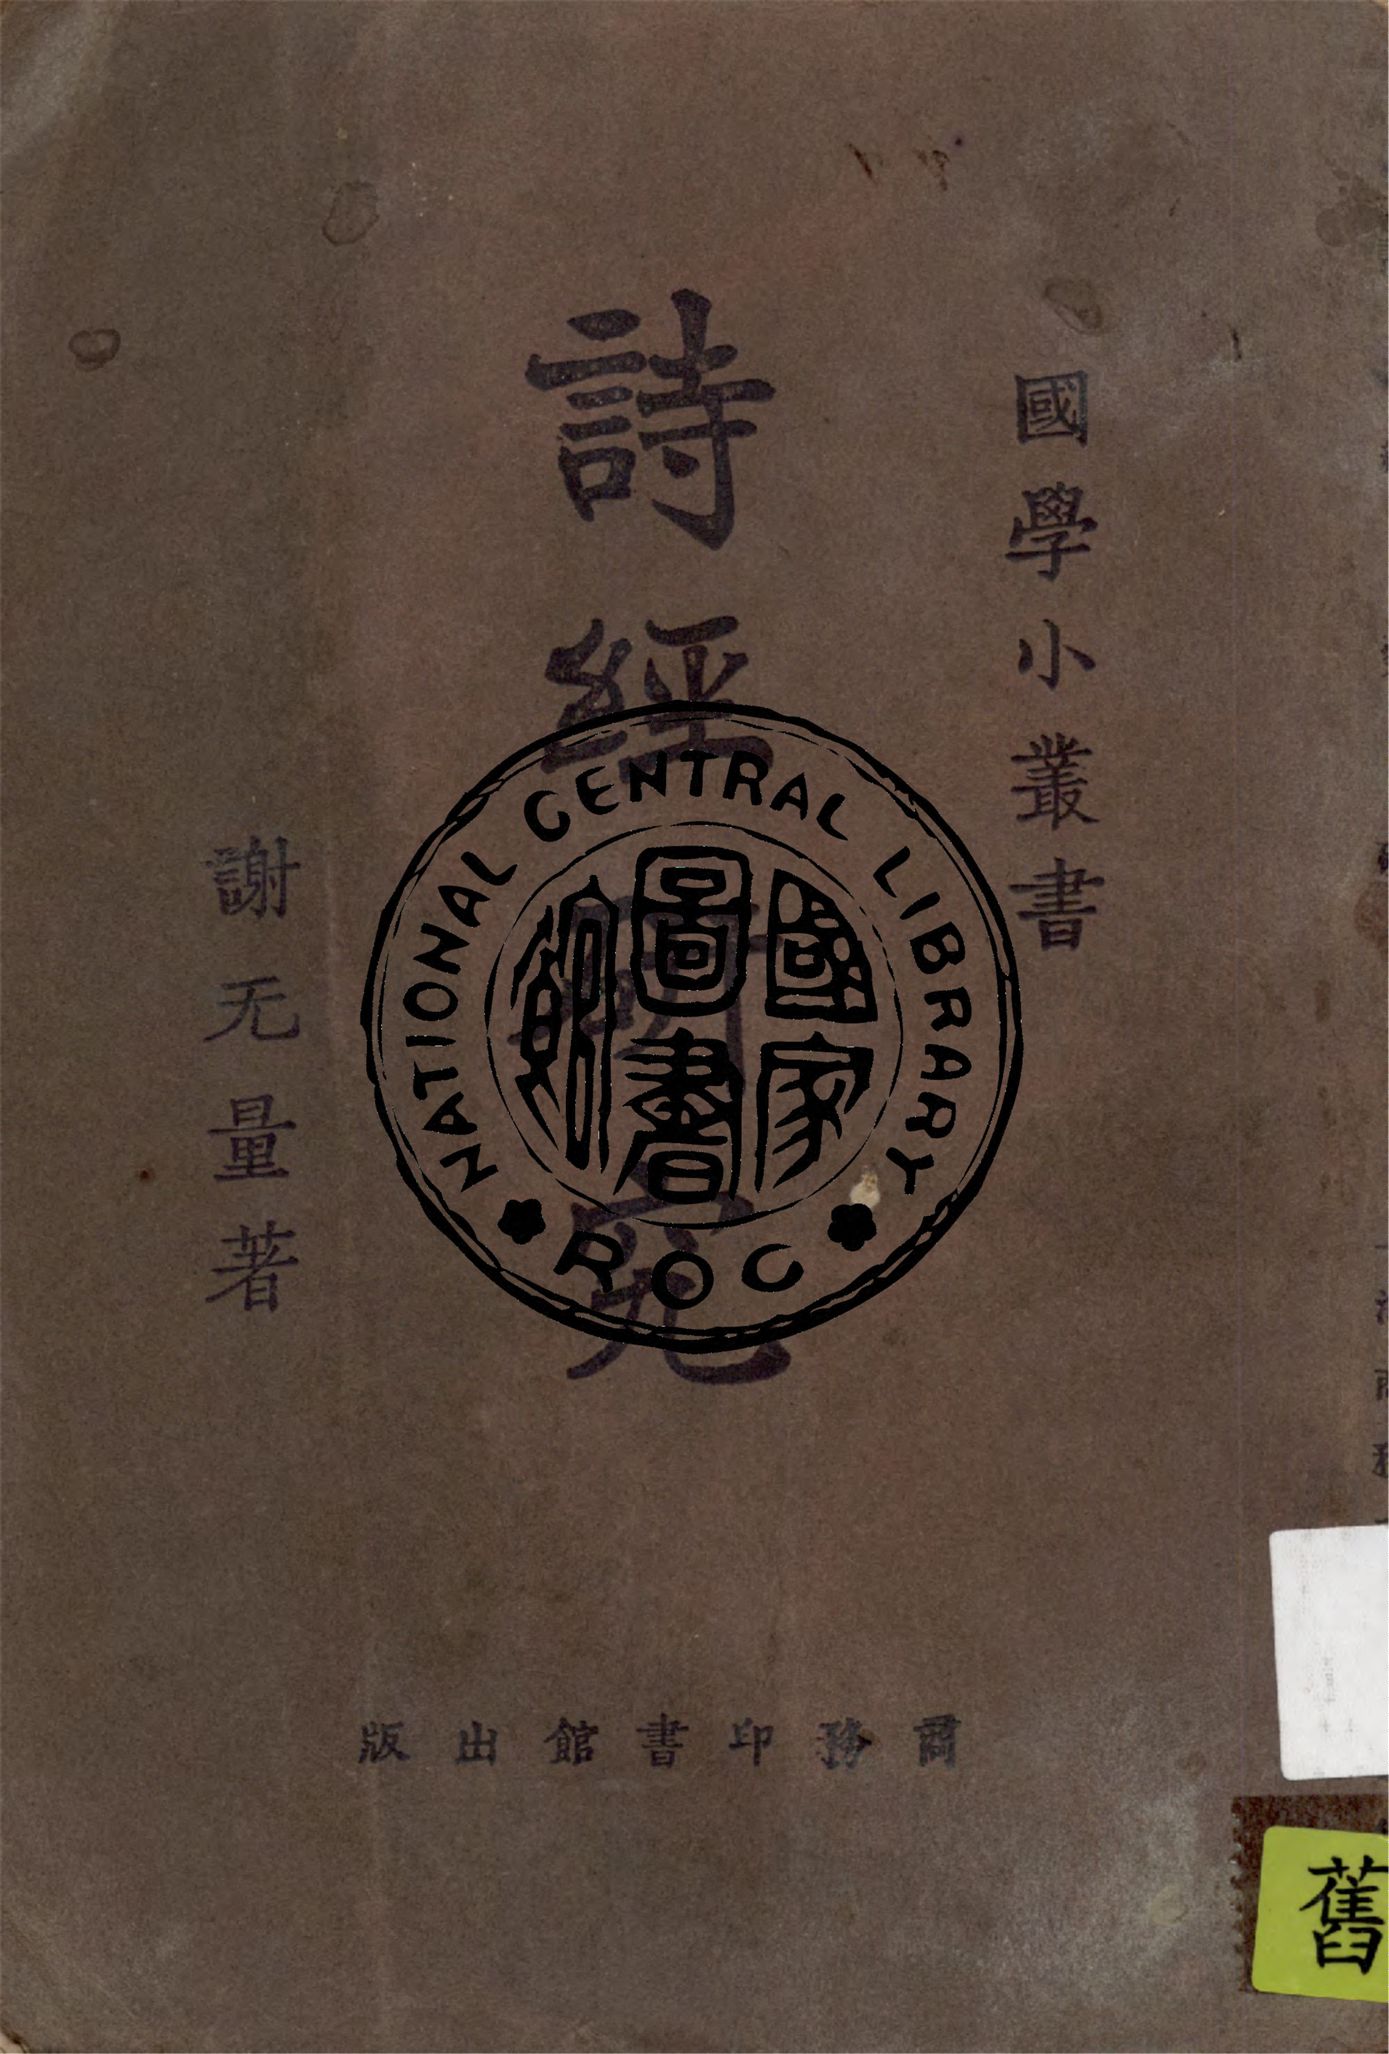 國學小叢書
詩經研究
謝无量著
商務印書館出版
NATIONAL CENTRAL LIBRARY
ROC
國家圖書館
舊